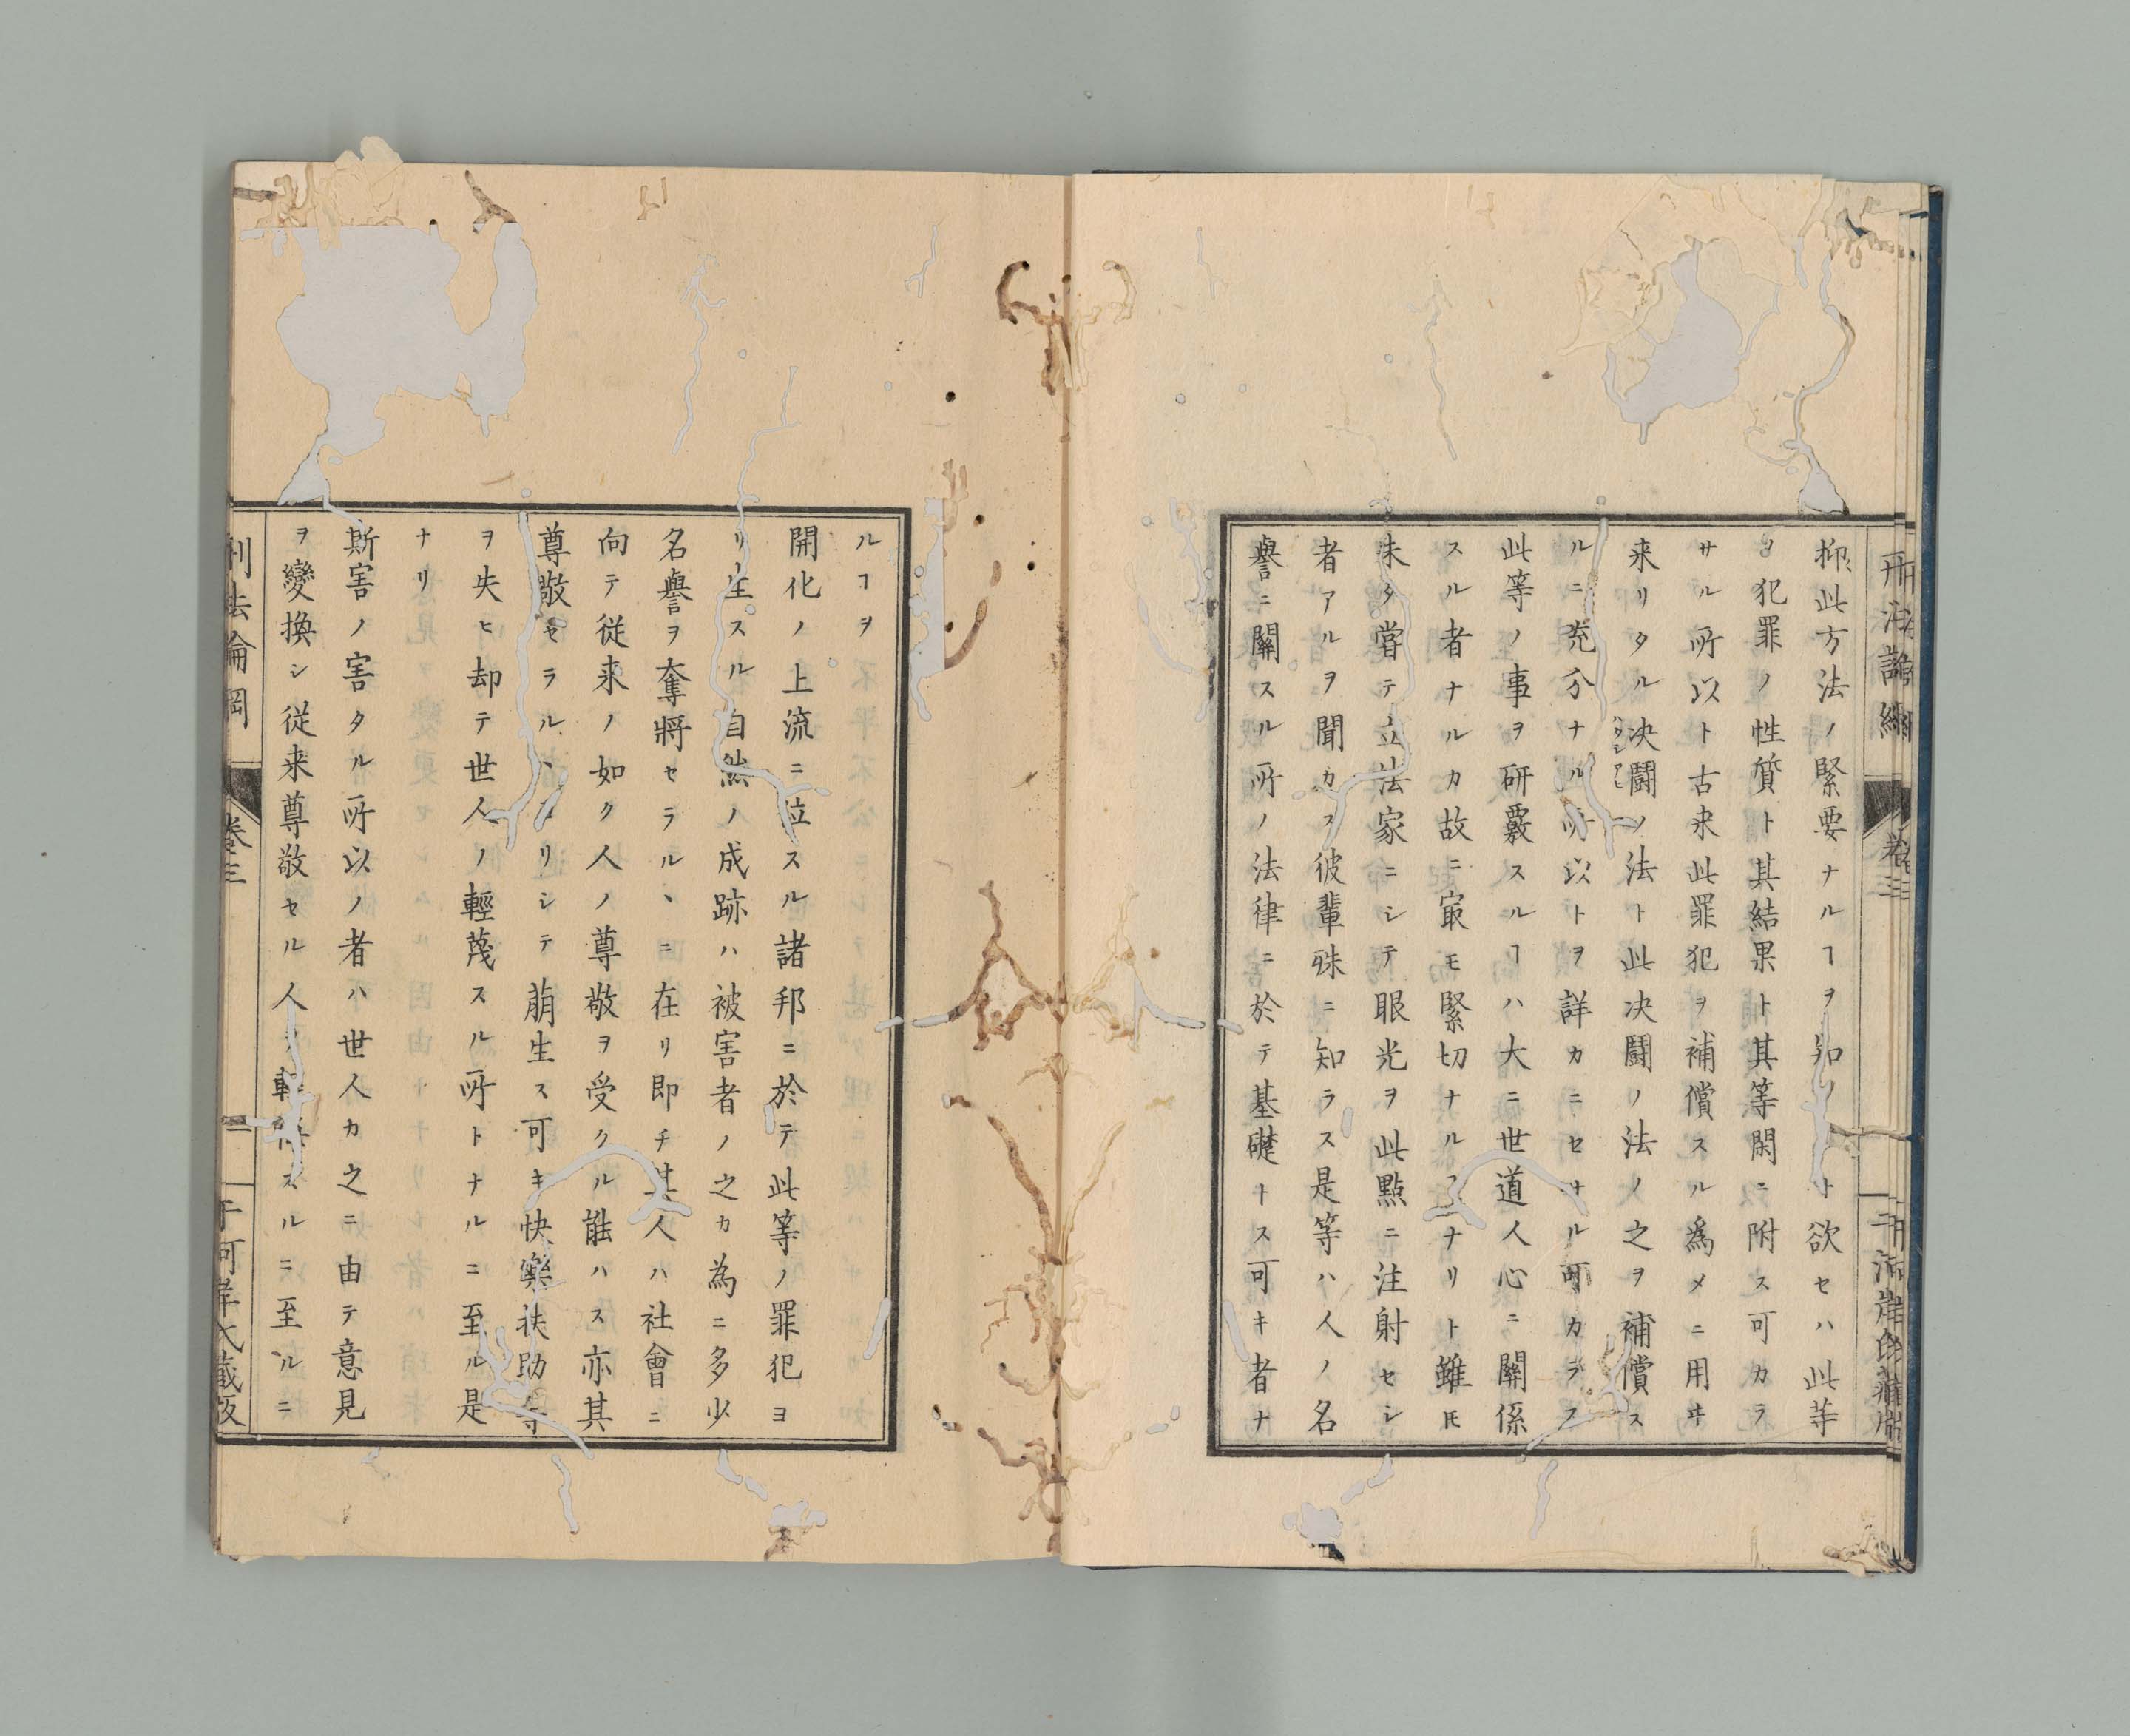 刑法論綱
卷三
抑此方法ノ緊要ナルヿヲ知ント欲セハ此等
ヨ犯罪ノ性質ト其結果ト其等閑ニ附ス可カラ
サル所以ト古来此罪犯ヲ補償スル爲メニ用ヰ
来リタル决鬪ノ法ト此决鬪ノ法ノ之ヲ補償ス
ルニ充分ナル所以トヲ詳カニセサル可カラス
此等ノ事ヲ研覈スルヿハ大ニ世道人心ニ關係
スル者ナルカ故ニ㝡モ緊切ナルヿナリト雖𪜈
未タ甞テ立法家ニシテ眼光ヲ此點ニ注射セシ
者アルヲ聞カス彼輩殊ニ知ラス是等ハ人ノ名
譽ニ關スル所ノ法律ニ於テ基礎トス可キ者ナ
ルヿヲ
開化ノ上流ニ位スル諸邦ニ於テ此等ノ罪犯ヨ
リ生スル自然ノ成跡ハ被害者ノ之カ為ニ多少
名譽ヲ奪將セラルヽニ在リ即チ其人ハ社會ニ
向テ従来ノ如ク人ノ尊敬ヲ受クル能ハス亦其
尊敬セラルヽヨリシテ萠生ス可キ快樂扶助等
ヲ失ヒ却テ世人ノ輕蔑スル所トナルニ至ル是
ナリ
斯害ノ害タル所以ノ者ハ世人カ之ニ由テ意見
ヲ變換シ従来尊敬セル人ヲ輕スルニ至ルニ
刑法論綱
卷三
二
河岸氏藏版